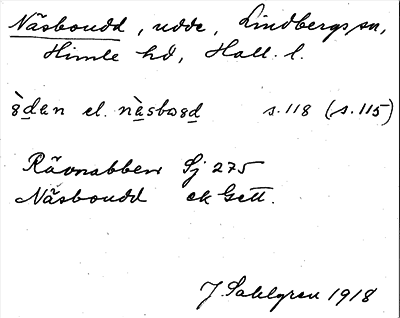 Näsboudd, udde, Lindbergs sn,
Himle hd, Hall. l.
s. 118 (s. 115)
Rävnabben Sj 275
Näsboudd ek Gett.
J. Sahlgren 1918